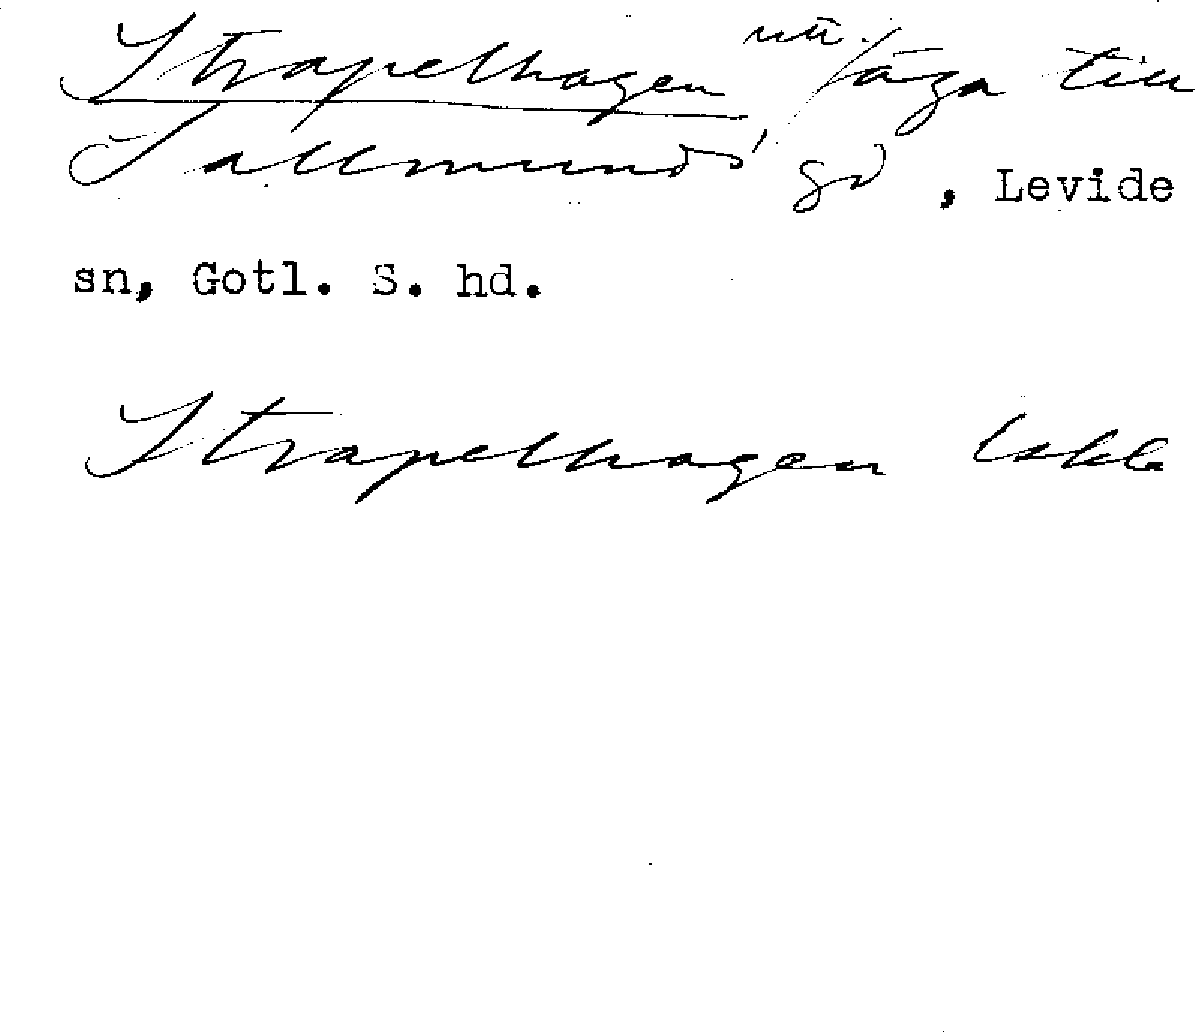 Strapelhagen äga till
Sallmunds gd, Levide
sn, Gotl. S. hd.
Strapelhagen